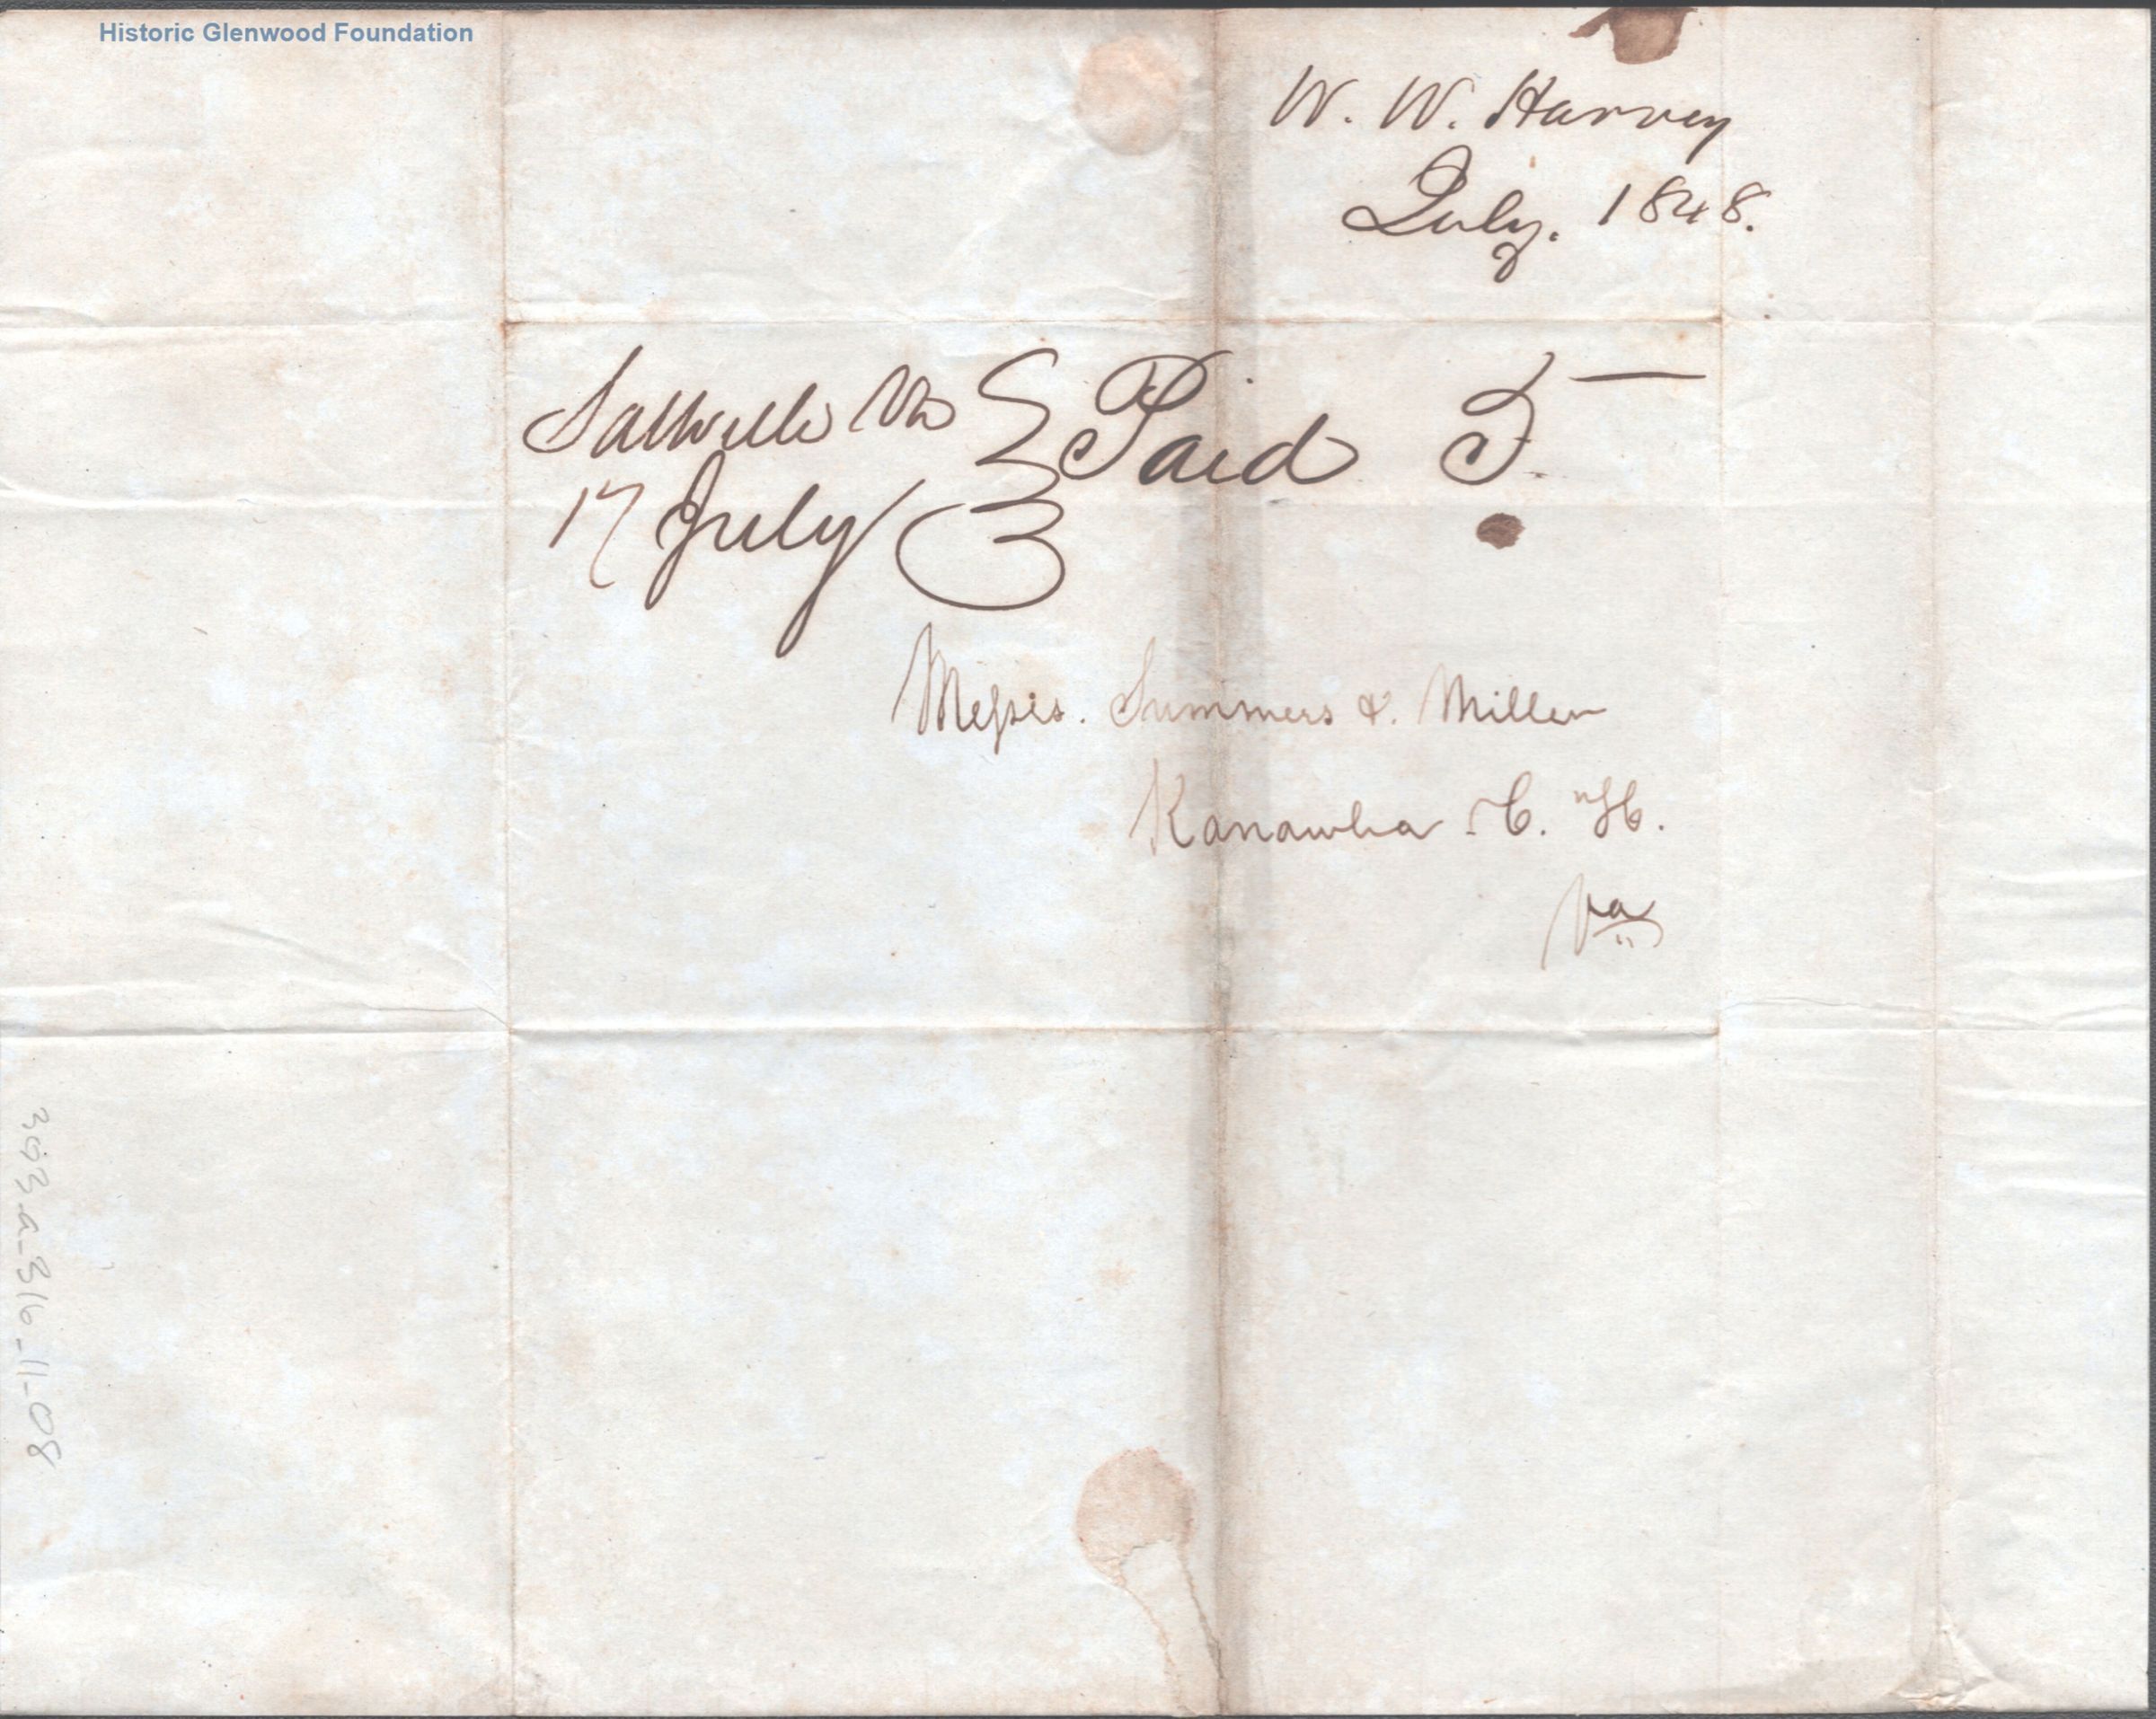 Historic Glenwood Foundation
W. W. Harvey
July. 1848.
Saltville Va
17 July
Paid 5
Messrs. Summers &. Miller
Kanawha C. H.
Va
393a_316_11-08